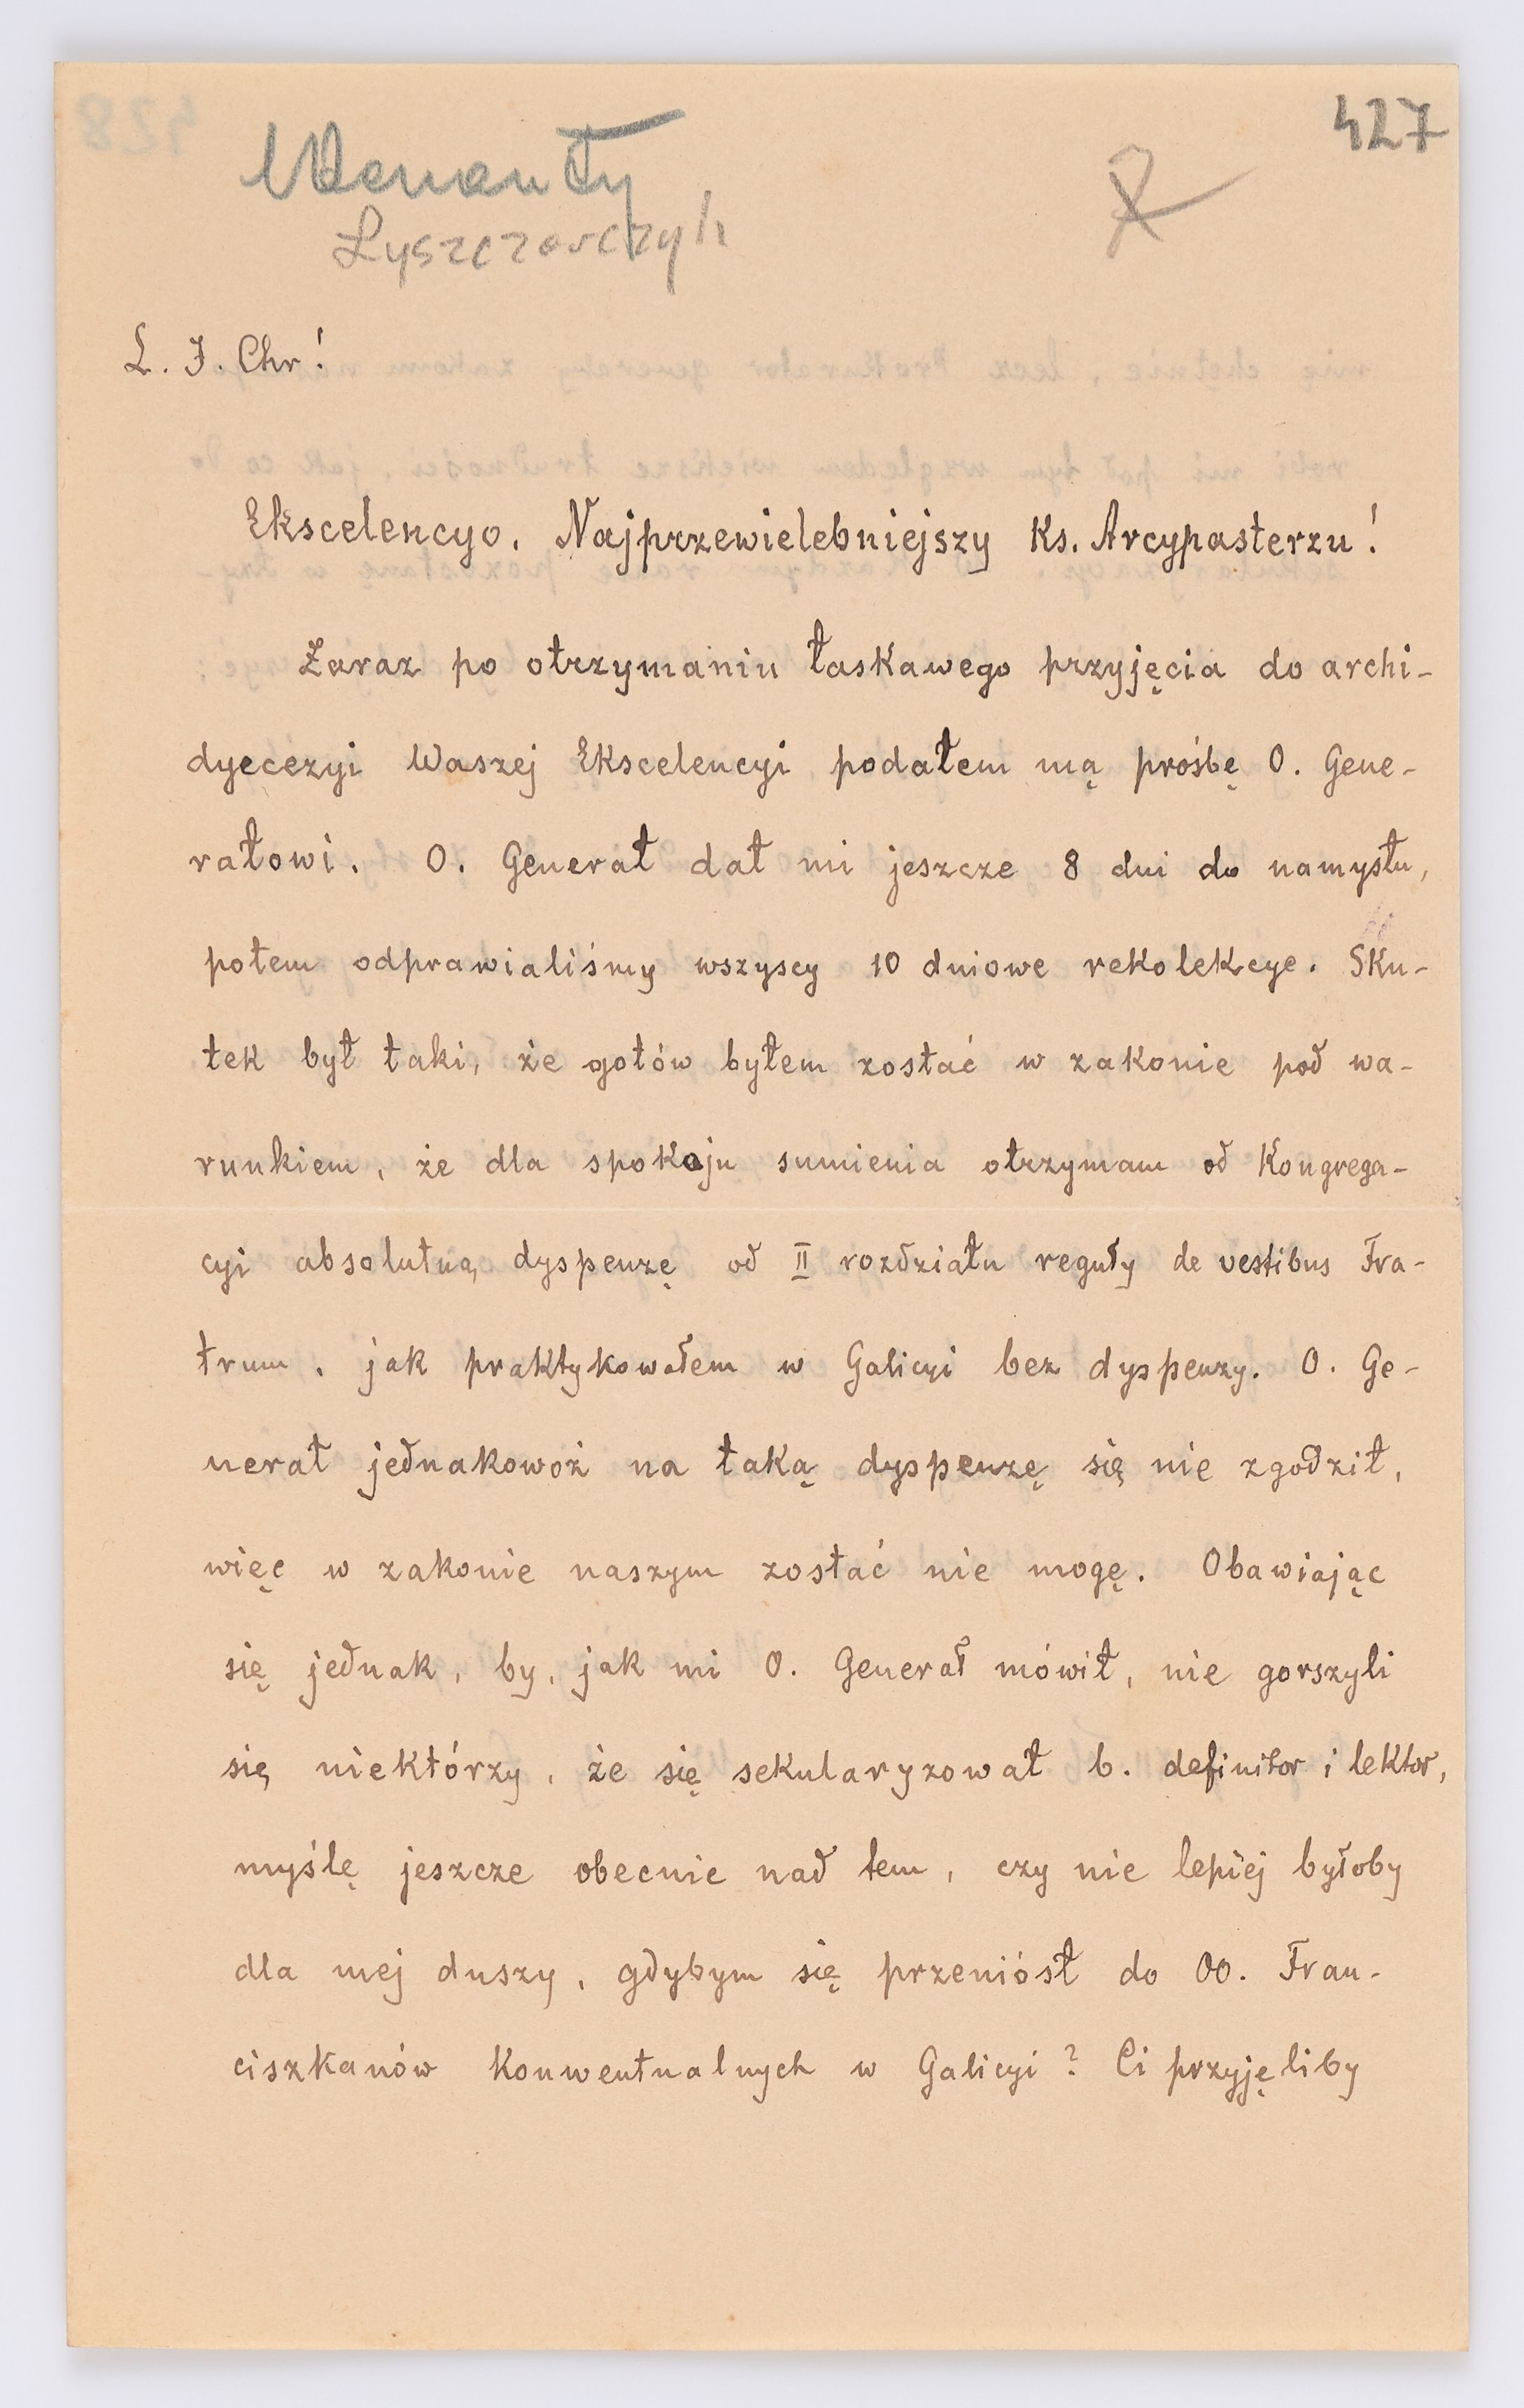 427
Łyszczarczyk
L. J. Chr!
Ekscelencyo, Najprzewielebniejszy Ks. Arcypasterzu!
Zaraz po otrzymaniu łaskawego przyjęcia do archi-
dyecezyi Waszej Ekscelencyi podałem mą prośbę O. Gene-
rałowi. O. Generał dał mi jeszcze 8 dni do namysłu,
potem odprawialiśmy wszyscy 10 dniowe rekolekcye. Sku-
tek był taki, że gotów byłem zostać w zakonie pod wa-
runkiem, że dla spokoju sumienia otrzymam od Kongrega-
cyi absolutną dyspenzę od II rozdziału reguły de vestibus Fra-
trum, jak praktykowałem w Galicyi bez dyspenzy. O. Ge-
nerał jednakowoż na taką dyspenzę się nie zgodził,
więc w zakonie naszym zostać nie mogę. Obawiając
się jednak, by, jak mi O. Generał mówił, nie gorszyli
się niektórzy, że się sekularyzował b. definitor i lektor,
myślę jeszcze obecnie nad tem, czy nie lepiej byłoby
dla mej duszy, gdybym się przeniósł do OO. Fran-
ciszkanów Konwentualnych w Galicyi? Ci przyjęliby